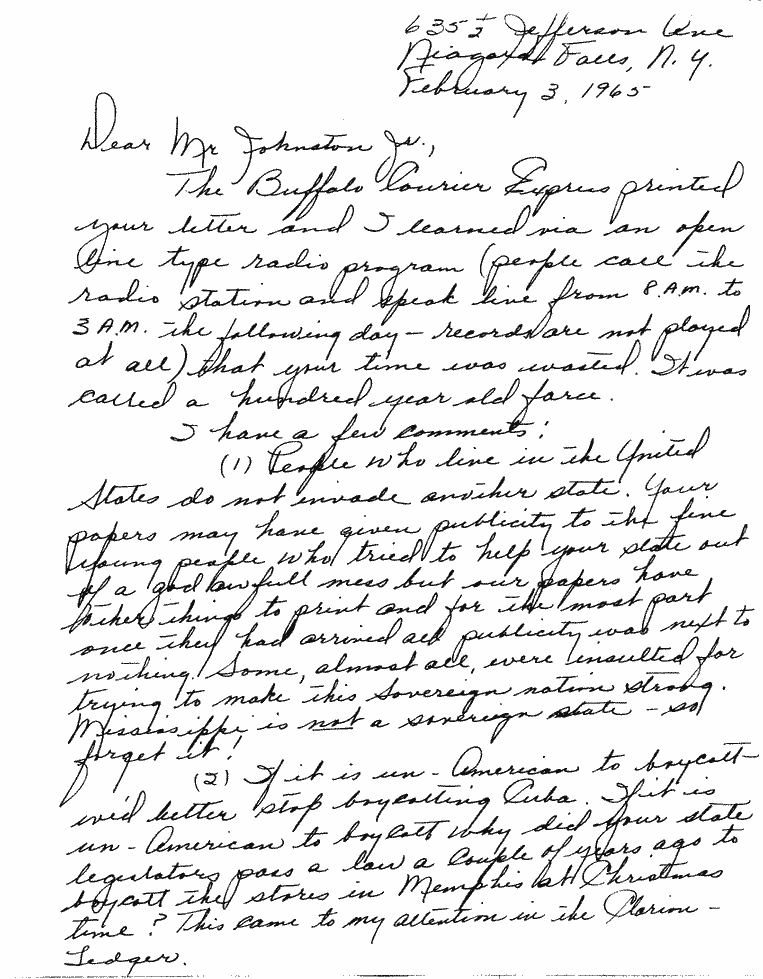 635 1/2 Jefferson Ave
Niagara Falls, N.Y.
February 3, 1965
Dear Mr Johnston Jr.,
The Buffalo Courier Express printed
your letter and I learned via an open
line type radio program (people call the
radio station and speak live from 8 A.M. to
3 A.M. the following day - records are not played
at all) that your time was wasted. It was
called a hundred year old farce.
I have a few comments:
(1) People who live in the United
States do not invade another state. Your
papers may have given publicity to the fine
young people who tried to help your state out
of a god awfull mess but our papers have
other things to print and for the most part
once they had arrived all publicity was next to
nothing. Some, almost all, were insulted for
trying to make this sovereign nation strong.
Mississippi is not a sovereign state - so
forget it!
(2) If it is un-American to boycott -
we'd better stop boycotting Cuba. If it is
un-American to boycott why did your state
legislators pass a law a couple of years ago to
boycott the stores in Memphis at Christmas
time? This came to my attention in the Clarion -
Ledger.